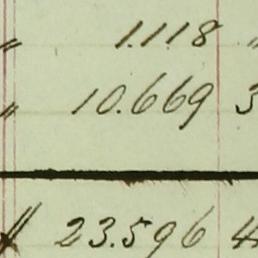 " 1.118 "
" 10.669 3
23.596 4